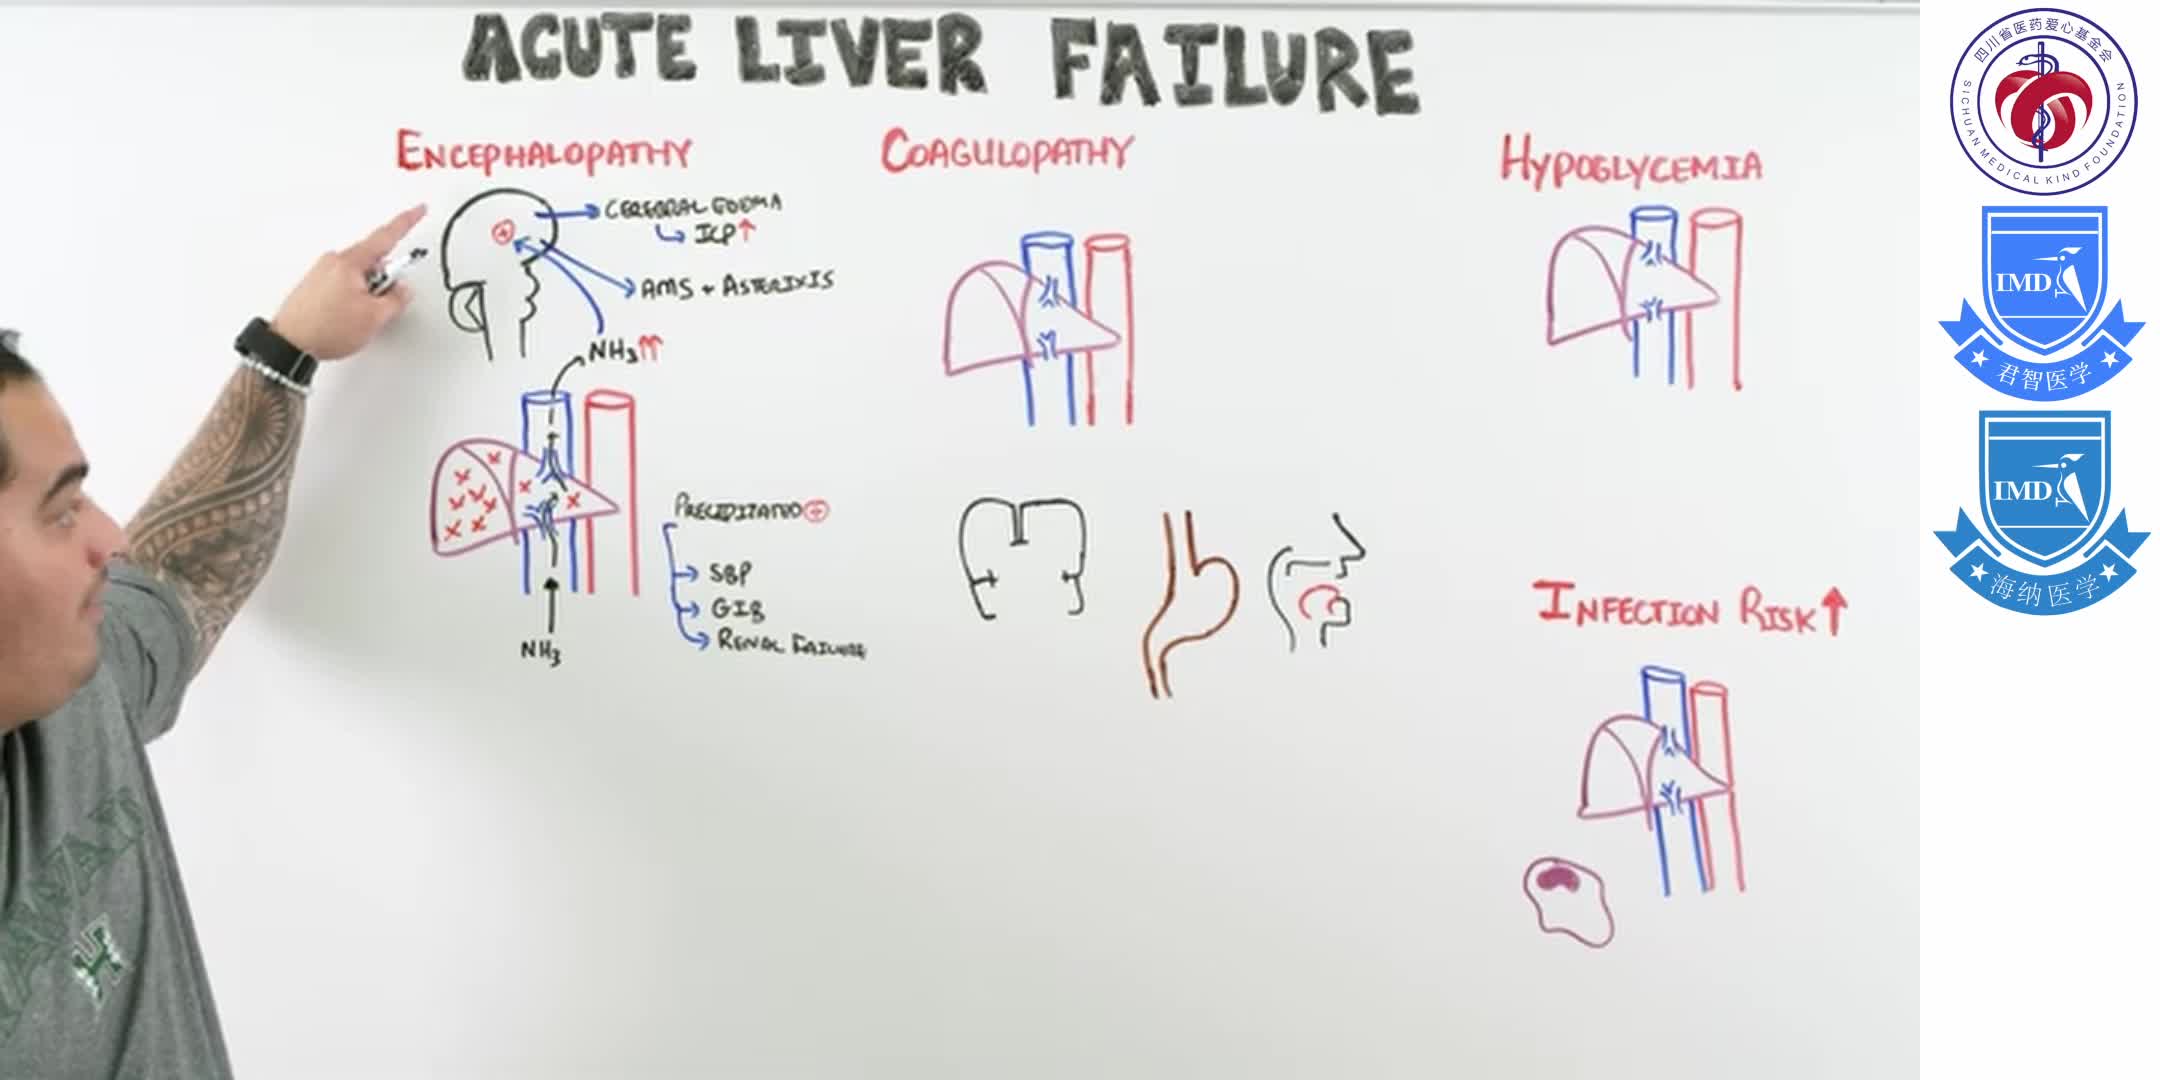 ACUTE LIVER FAILURE
ENCEPHALOPATHY
CEREBRAL EDEMA
ICP↑
AMS + ASTERIXIS
NH3↑↑
PRECIPITATED +
SBP
GIB
RENAL FAILURE
NH3
COAGULOPATHY
HYPOGLYCEMIA
INFECTION RISK↑
四川省医药爱心基金会
SICHUAN MEDICAL KIND FOUNDATION
IMD
君智医学
IMD
海纳医学